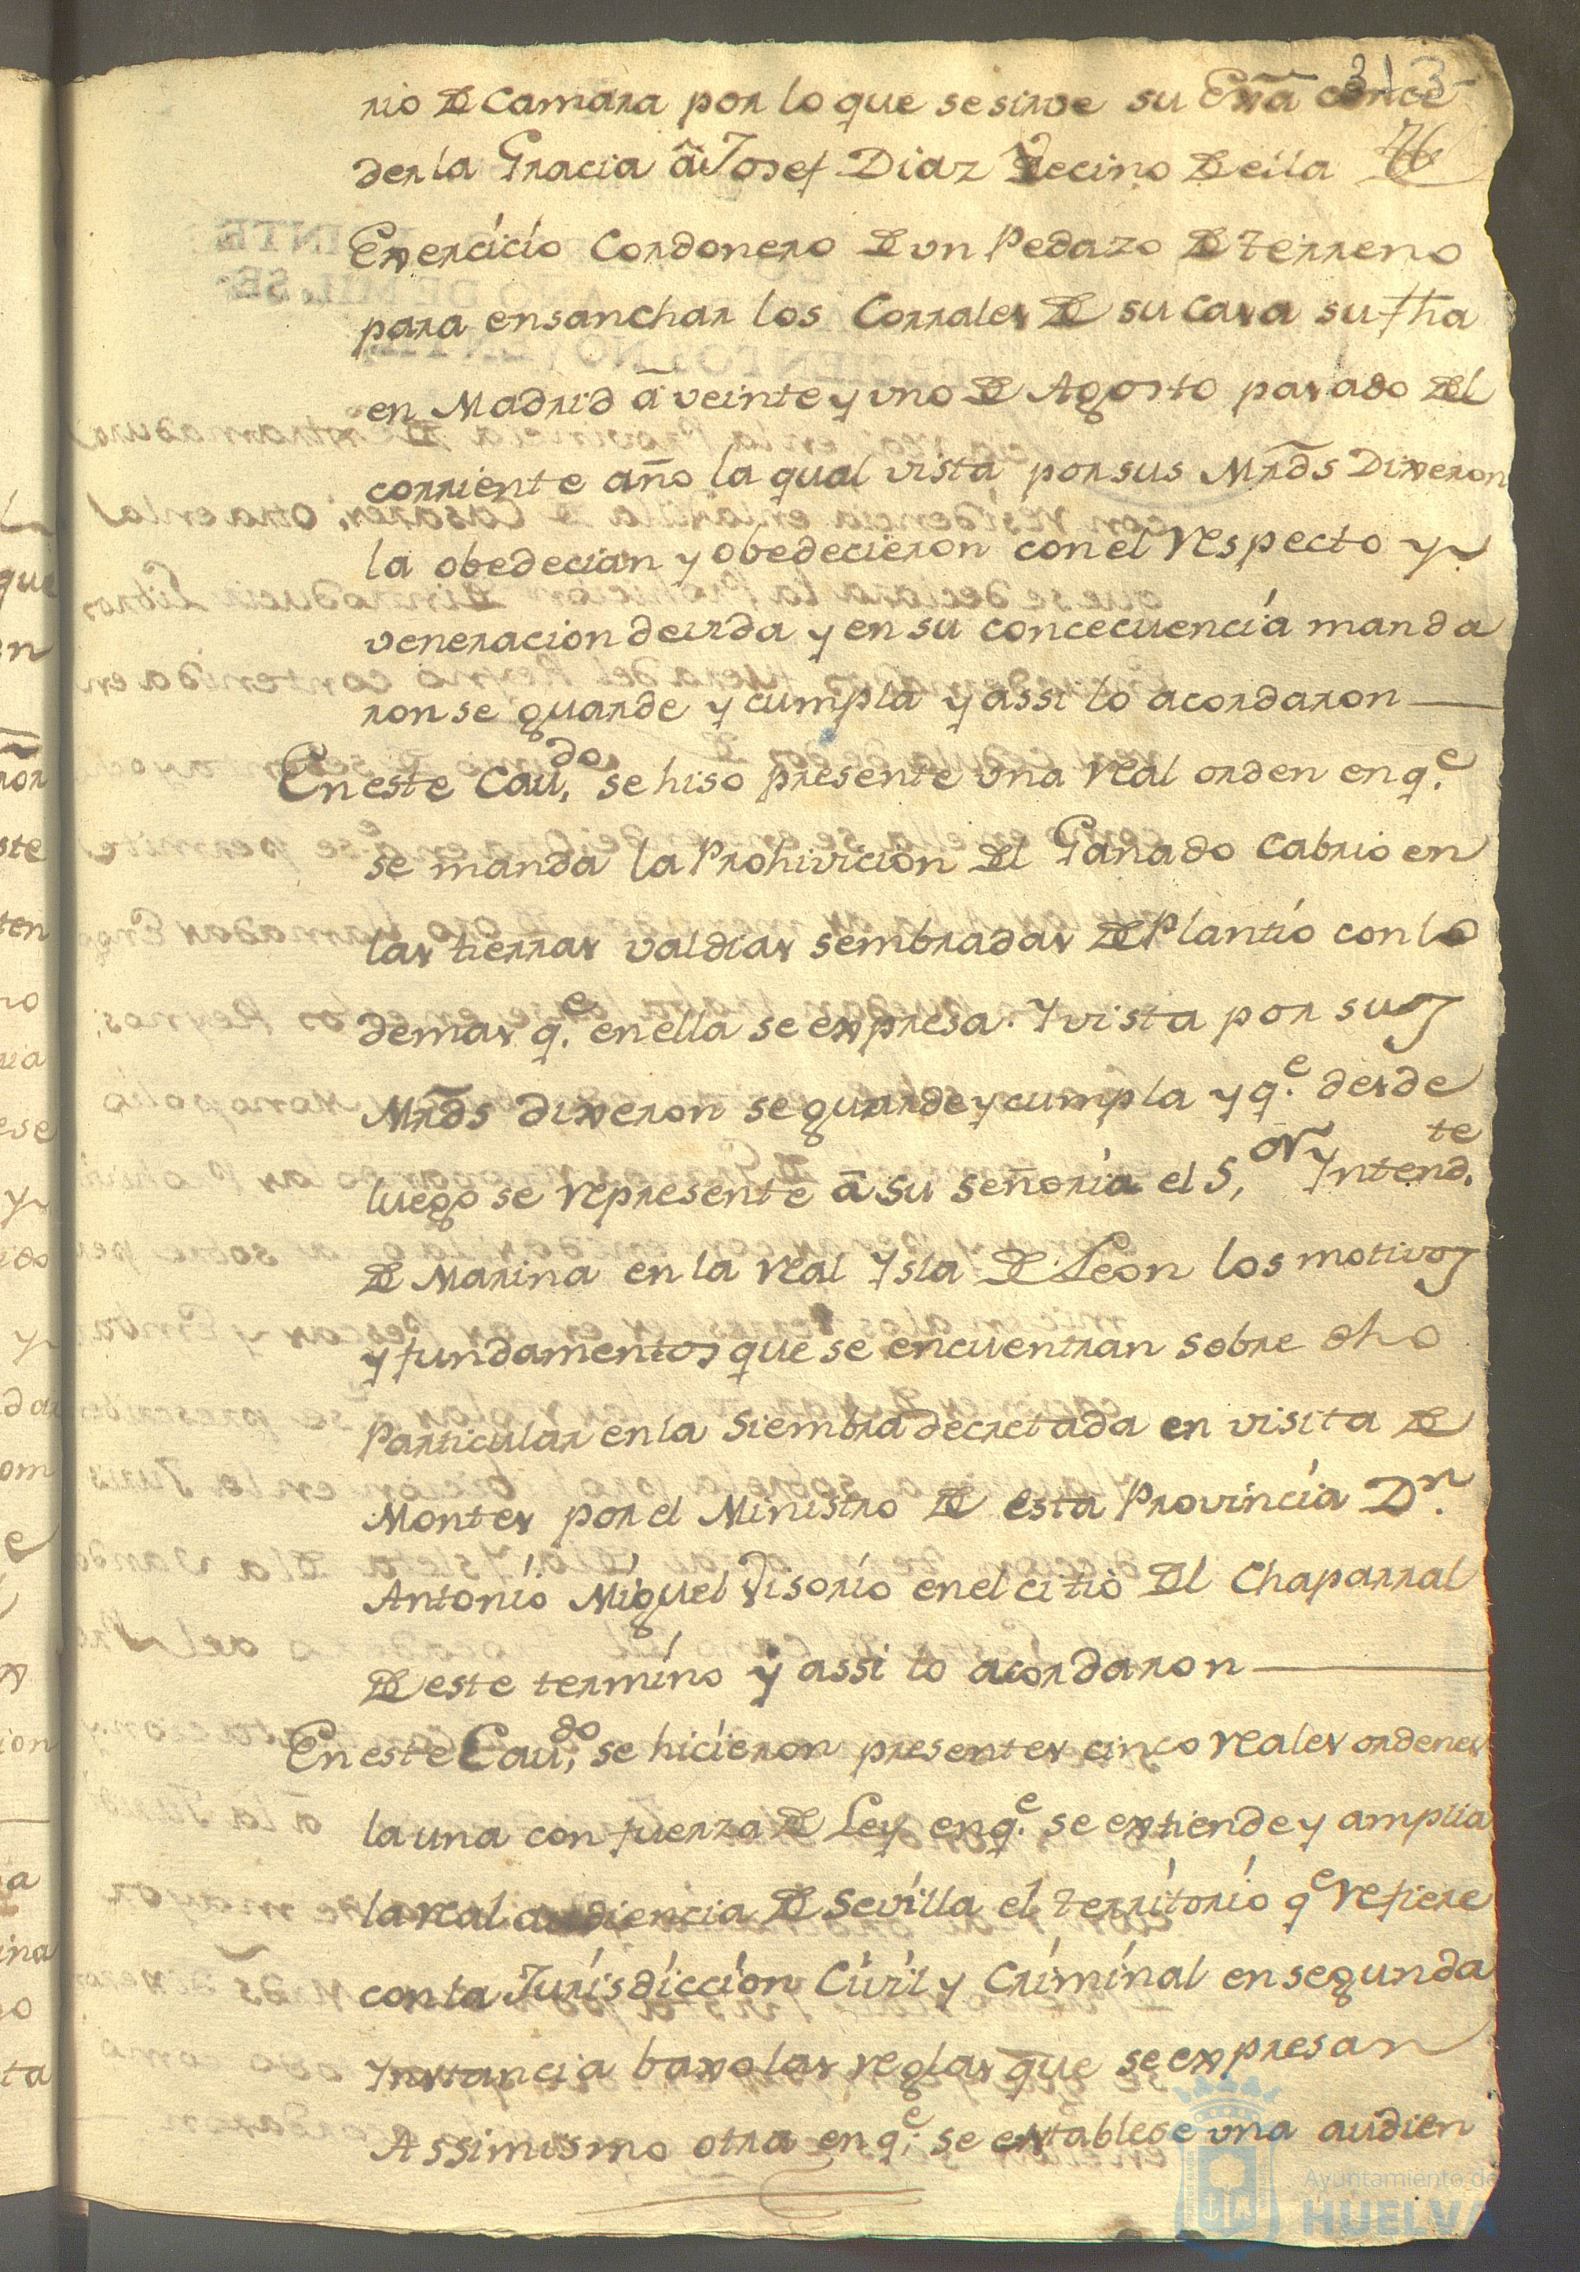 313
76
rio de camara por lo que se sirve su Exã conce
der la Gracia â Josef Diaz Vecino de ella
Exercicio Cordonero de vn Pedazo de terreno
para ensanchar los Corrales de su casa su fha
en Madrid â veinte y vno de Agosto pasado del
corriente año la qual vista por sus Mrds Dixeron
la obedecian y obedecieron con el respecto y
veneracion devida y en su concecuencia manda
ron se guarde y cumpla y assi lo acordaron
En este Cav.do se hiso presente vna real orden en q.e
se manda la Prohivicion del Ganado Cabrio en
las tierras valdias sembradas de Plantio con lo
demas q.e en ella se expresa. Y vista por sus
Mrds dixeron se guarde y cumpla y q.e desde
luego se represente â su señoria el S.or Yntend.te
de Marina en la real Ysla de Leon los motivos
y fundamentos que se encuentran sobre dho
Particular en la Siembra decretada en visita de
Montes por el Ministro de esta Provincia D.n
Antonio Miguel Visorio en el citio del Chaparral
de este termino y assi lo acordaron
En este Cav.do se hicieron presentes cinco reales ordenes
la una con fuerza de Ley en q.e se extiende y amplia
la real audiencia de Sevilla el territorio q.e refiere
con la Jurisdiccion Civil y Criminal en segunda
Ynstancia baxo las reglas que se expresan
Assimismo otra en q.e se establece vna audien
Ayuntamiento de
HUELVA